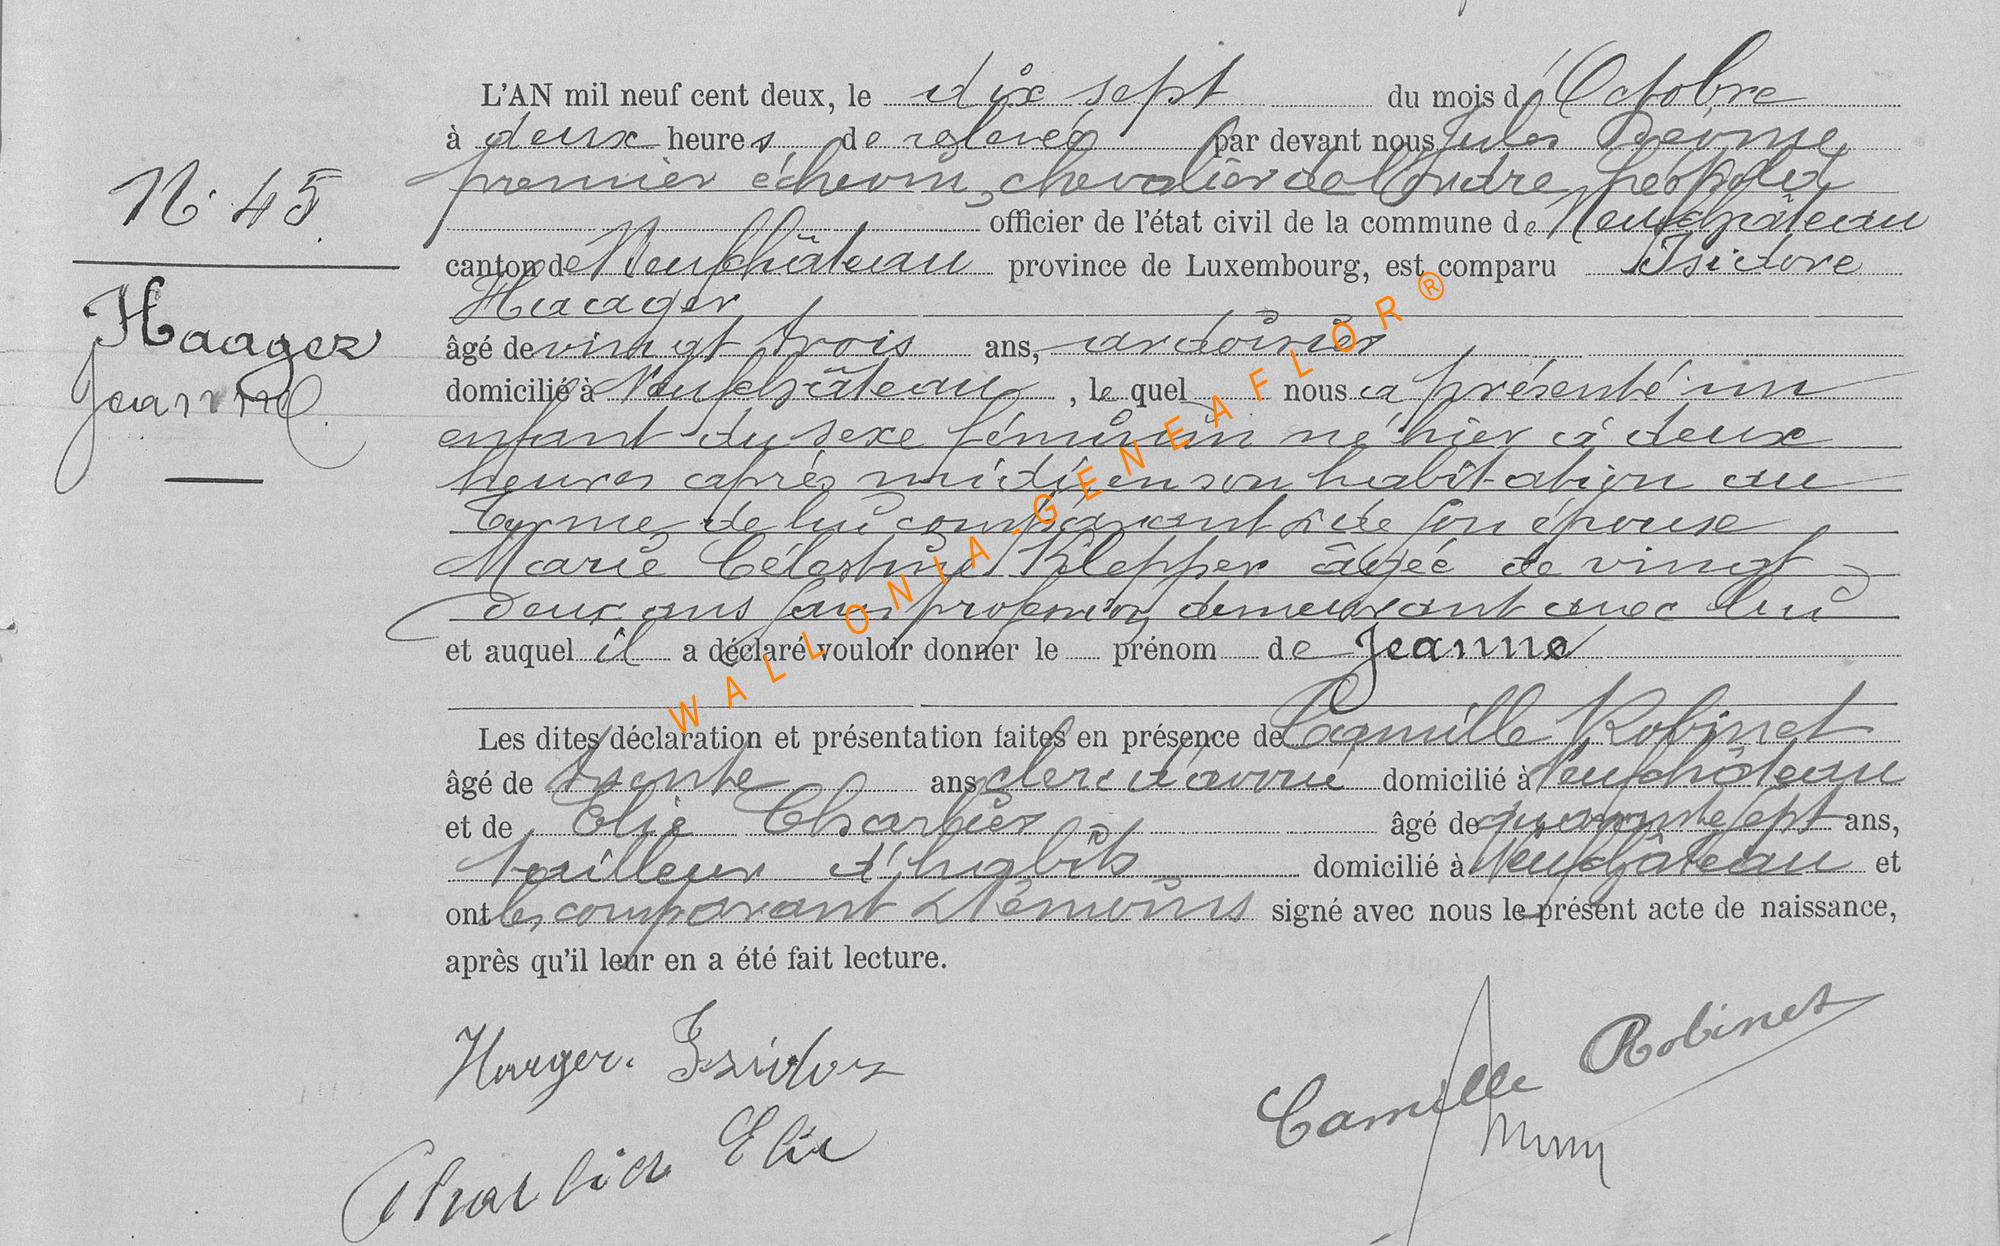 N° 45
Haager
Jeanne
L'AN mil neuf cent deux, le dix sept du mois d'Octobre
à deux heures de relevée par devant nous Jules
premier échevin, chevalier de l'Ordre Léopold
officier de l'état civil de la commune de Neufchâteau
canton de Neufchâteau province de Luxembourg, est comparu Isidore
Haager
âgé de vingt trois ans, ardoisier
domicilié à Neufchâteau, le quel nous a présenté un
enfant du sexe féminin né hier à deux
heures après midi en son habitation au
Terme de lui comparant & de son épouse
Marie Célestine Klepper âgée de vingt
deux ans sans profession demeurant avec lui
et auquel il a déclaré vouloir donner le prénom de Jeanne
Les dites déclaration et présentation faites en présence de Camille Robinet
âgé de trente ans clerc d'avoué domicilié à Neufchâteau
et de Elie Charlier âgé de quarante sept ans,
tailleur d'habits domicilié à Neufchâteau et
ont les comparant & témoins signé avec nous le présent acte de naissance,
après qu'il leur en a été fait lecture.
Haager. Isidor
Camille Robinet
Charlier Elie
WALLONIA-GENEAFLOR®